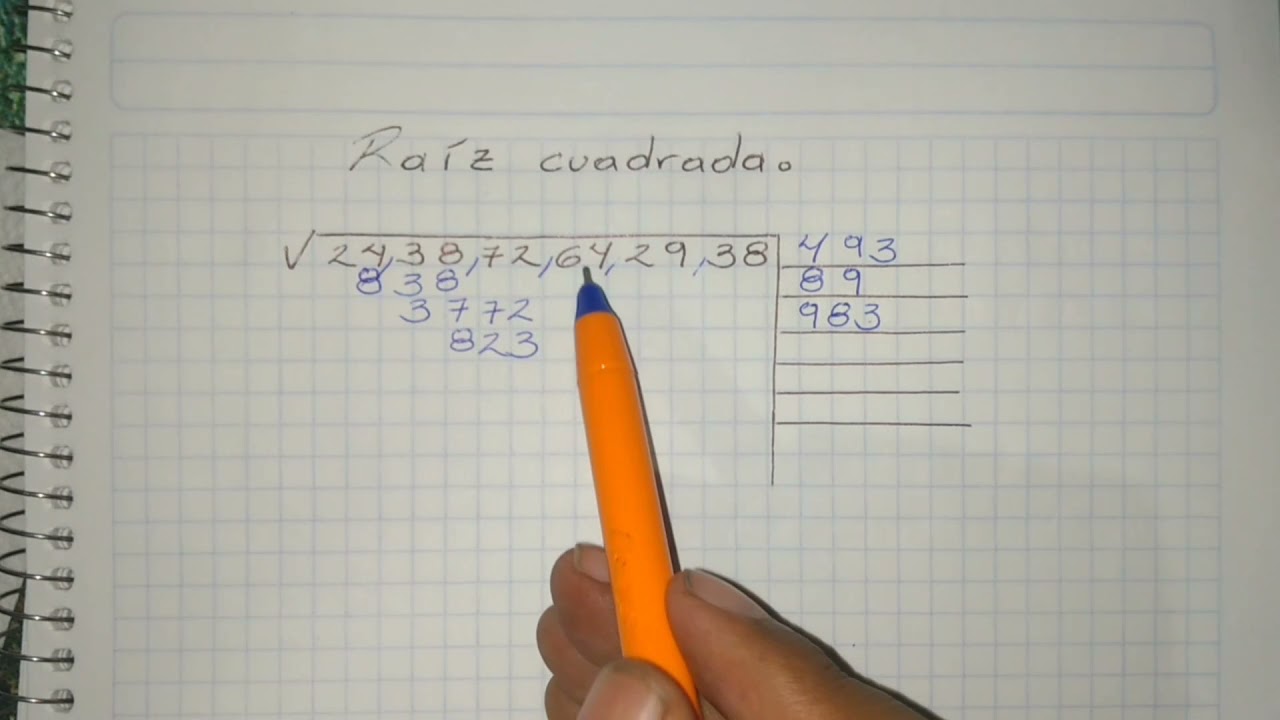 Raíz cuadrada.
√24,38,72,64,29,38 493
838 89
3772 983
823